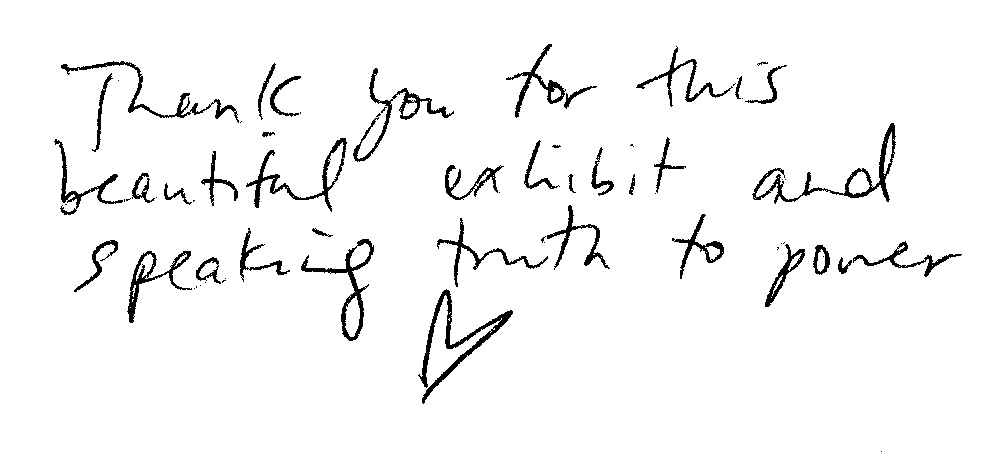 Thank you for this
beautiful exhibit and
speaking truth to power